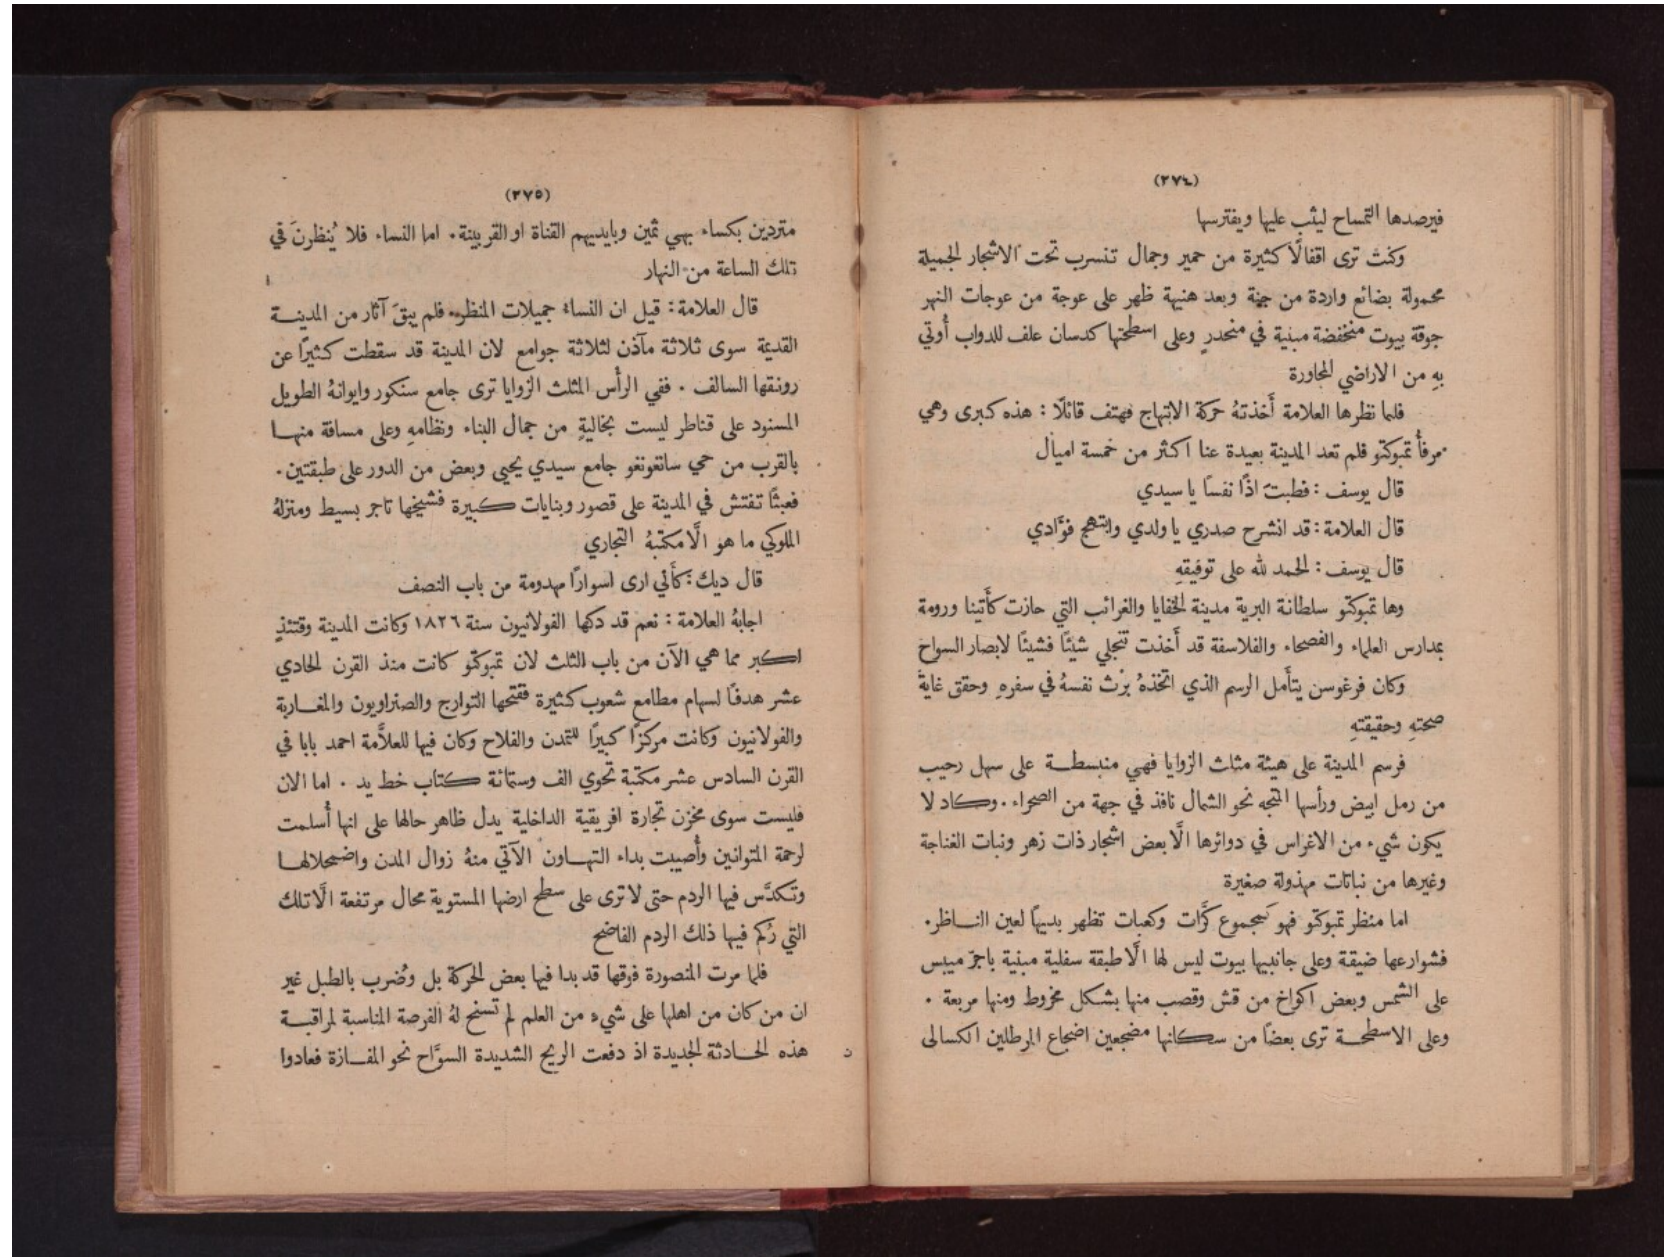 (٢٧٤)
فيرصدها التمساح ليثب عليها ويفترسها
وكنت ترى اقفالًا كثيرة من حمير وجمال تنسرب تحت الاشجار الجميلة
محمولة بضائع واردة من جنة وبعد هنيهة ظهر على عوجة من عوجات النهر
جوقة بيوت منخفضة مبنية في منحدرٍ وعلى اسطحتها كدسان علف للدواب أُوتي
بهِ من الاراضي المجاورة
فلما نظرها العلامة أَخذتهُ حركة الابتهاج فهتف قائلًا : هذه كبرى وهي
مرفأُ تمبوكتو فلم تعد المدينة بعيدة عنا اكثر من خمسة اميال
قال يوسف : فطبتَ اذًا نفسًا يا سيدي
قال العلامة : قد انشرح صدري يا ولدي وابتهج فوَّادي
قال يوسف : الحمد لله على توفيقهِ
وها تمبوكتو سلطانة البرية مدينة الخفايا والغرائب التي حازت كأَتينا ورومة
بمدارس العلماء والفصحاء والفلاسفة قد أَخذت تنجلي شيئًا فشيئًا لابصار السواح
وكان فرغوسن يتأَمل الرسم الذي اتخذهُ برْث نفسهُ في سفرهِ وحقق غايةَ
صحتهِ وحقيقتهِ
فرسم المدينة على هيئة مثلث الزوايا فهي منبسطة على سهل رحيب
من رمل ابيض ورأسها المتجه نحو الشمال نافذ في جهة من الصحراء . وكاد لا
يكون شيء من الاغراس في دوائرها الَّا بعض اشجار ذات زهر ونبات الغناجة
وغيرها من نباتات مهذولة صغيرة
اما منظر تمبوكتو فهو كمجموع كرَّات وكعبات تظهر بديهًا لعين الناظر.
فشوارعها ضيقة وعلى جانبيها بيوت ليس لها الَّا طبقة سفلية مبنية باجرّ ميبس
على الشمس وبعض اكواخ من قش وقصب منها بشكل مخروط ومنها مربعة .
وعلى الاسطحة ترى بعضًا من سكانها مضجعين اضجاع المرطلين الكسالى
(٢٧٥)
متردين بكساء بهي ثمين وبايديهم القناة او القربينة. اما النساء فلا يُنظرنَ في
تلك الساعة من النهار
قال العلامة : قيل ان النساءَ جميلات المنظر. فلم يبقَ آثار من المدينة
القديمة سوى ثلاثة مآذن لثلاثة جوامع لان المدينة قد سقطت كثيرًا عن
رونقها السالف . ففي الرأْس المثلث الزوايا ترى جامع سنكور وايوانهُ الطويل
المسنود على قناطر ليست بخاليةٍ من جمال البناء ونظامهِ وعلى مسافة منها
بالقرب من حي سانغونغو جامع سيدي يحيى وبعض من الدور على طبقتين.
فعبثًا تفتش في المدينة على قصور وبنايات كبيرة فشيخها تاجر بسيط ومنزلهُ
الملوكي ما هو الَّا مكتبهُ التجاري
قال ديك : كأَني ارى اسوارًا مهدومة من باب النصف
اجابهُ العلامة : نعم قد دكها الفولانيون سنة ١٨٢٦ وكانت المدينة وقتئذٍ
اكبر مما هي الآن من باب الثلث لان تمبوكتو كانت منذ القرن الحادي
عشر هدفًا لسهام مطامع شعوب كثيرة ففتحها التوارج والصنراويون والمغاربة
والفولانيون وكانت مركزًا كبيرًا للتمدن والفلاح وكان فيها للعلاَّمة احمد بابا في
القرن السادس عشر مكتبة تحوي الف وستمائة كتاب خط يد . اما الان
فليست سوى مخزن تجارة افريقية الداخلية يدل ظاهر حالها على انها أُسلمت
لرحمة المتوانين وأُصيبت بداء التهاون الآتي منهُ زوال المدن واضمحلالها
وتكدَّس فيها الردم حتى لا ترى على سطح ارضها المستوية محال مرتفعة الَّا تلك
التي رُكم فيها ذلك الردم الفاضح
فلما مرت المنصورة فوقها قد بدا فيها بعض الحركة بل وضُرب بالطبل غير
ان من كان من اهلها على شيءٍ من العلم لم تسنح لهُ الفرصة المناسبة لمراقبة
هذه الحادثة الجديدة اذ دفعت الريح الشديدة السوَّاح نحو المفازة فعادوا